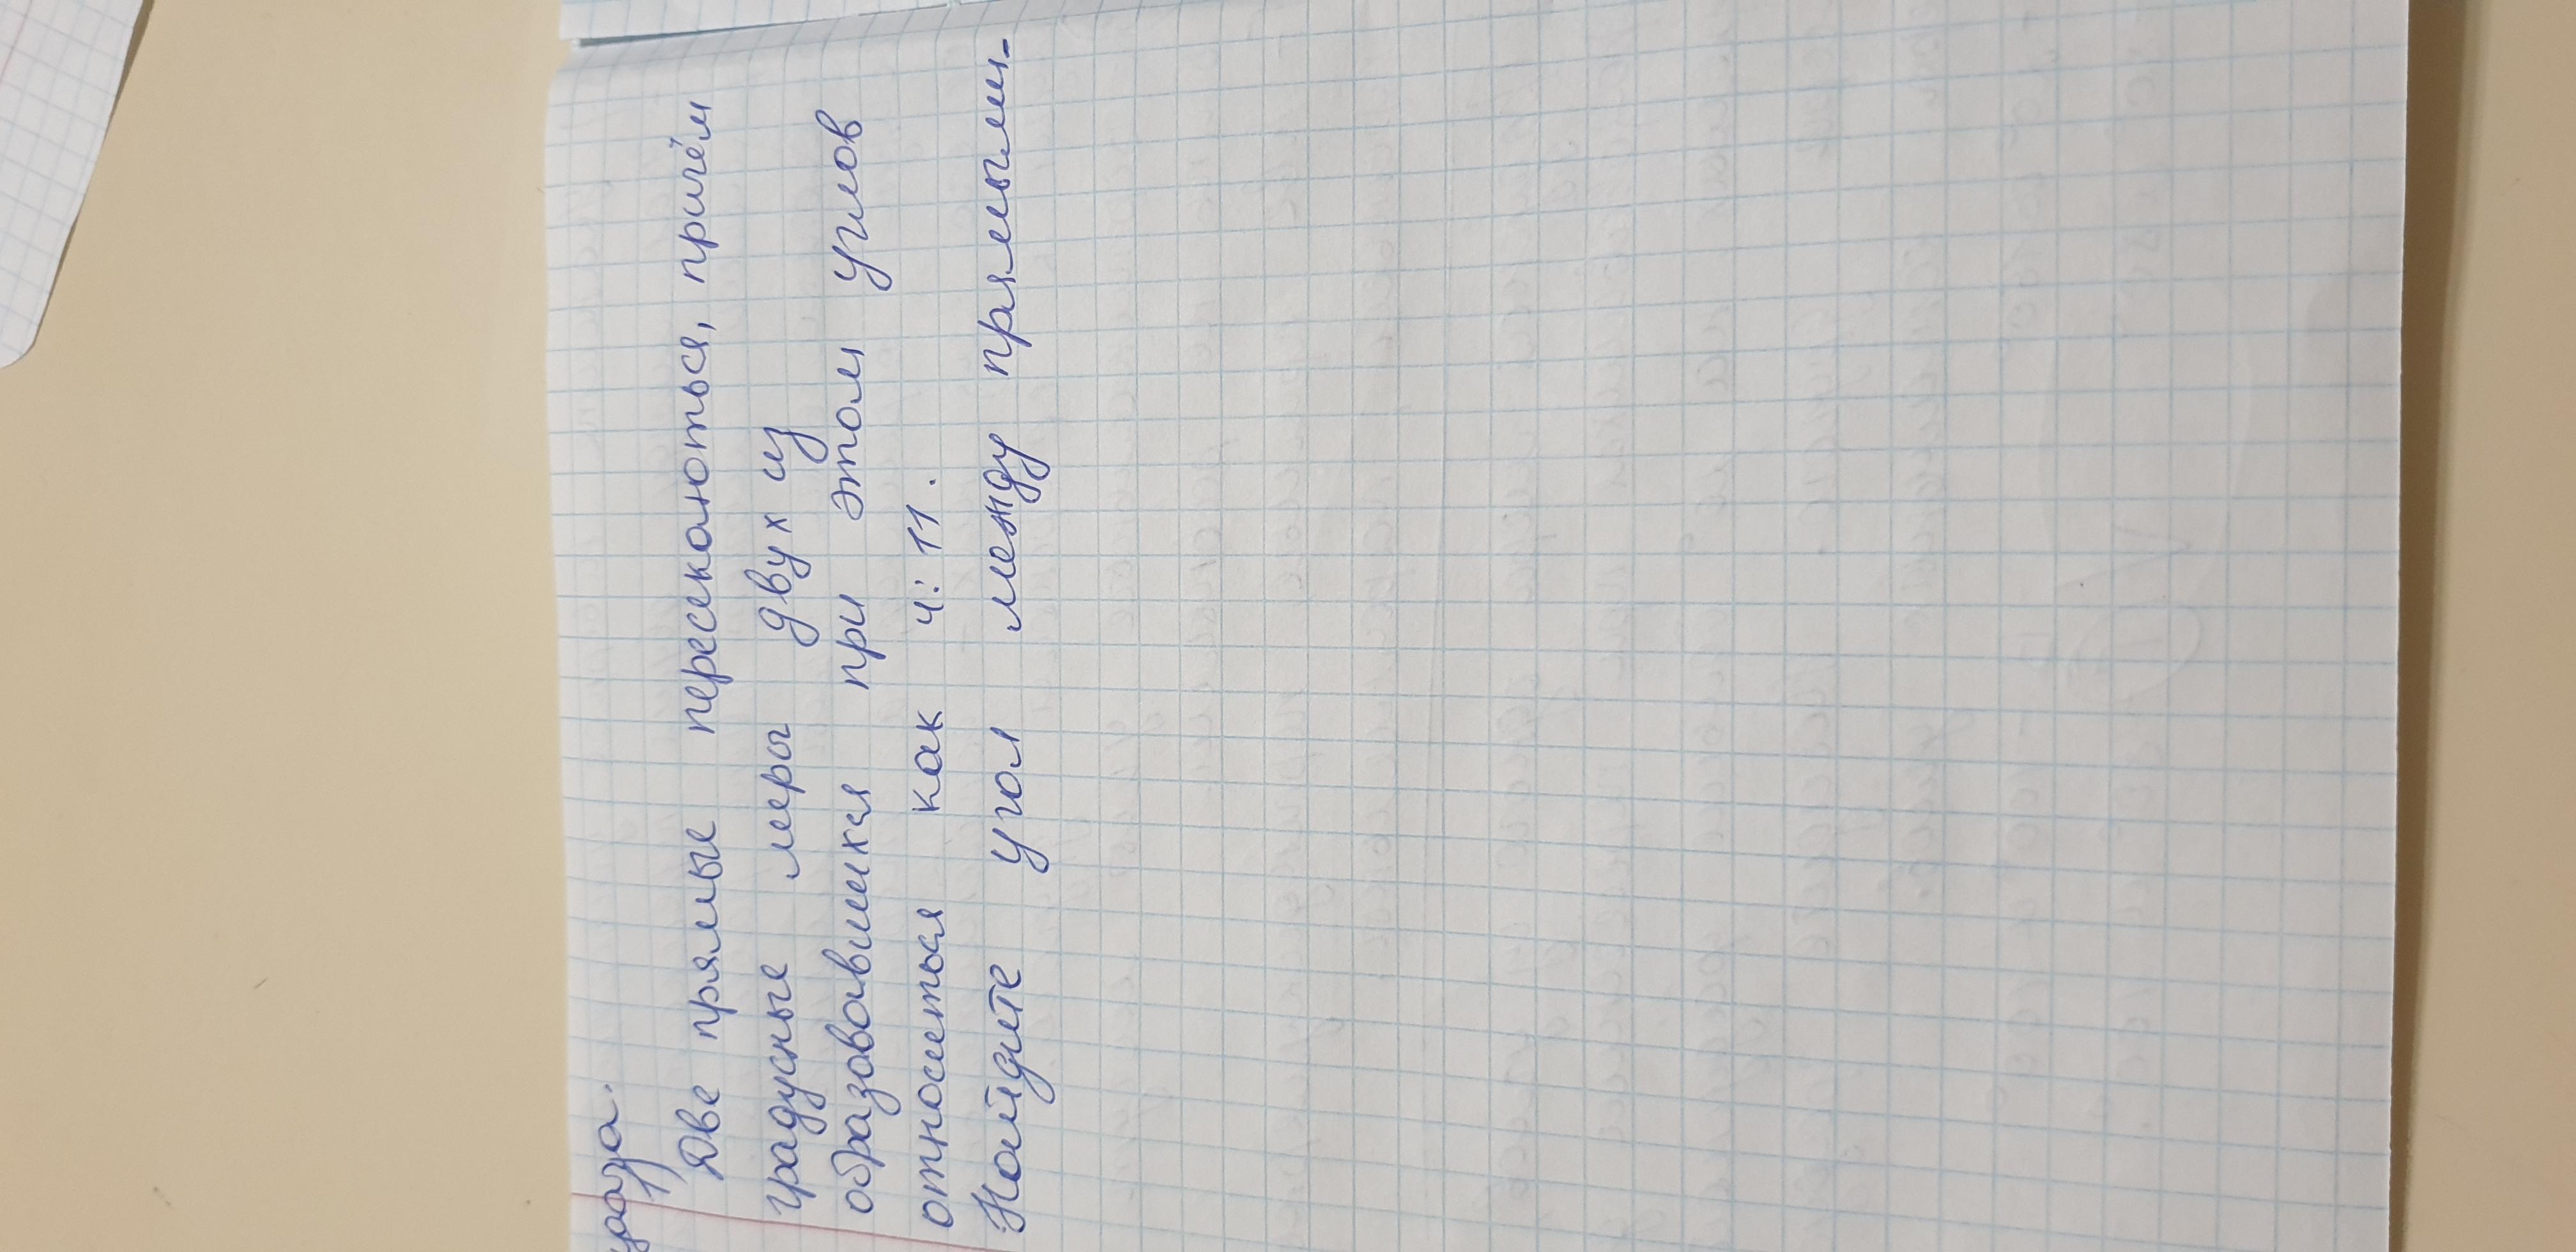 1)
Две прямые пересекаються, причём
градусные меры двух из
образовавшихся при этом углов
относиться как 4:11.
Найдите угол между прямыми.